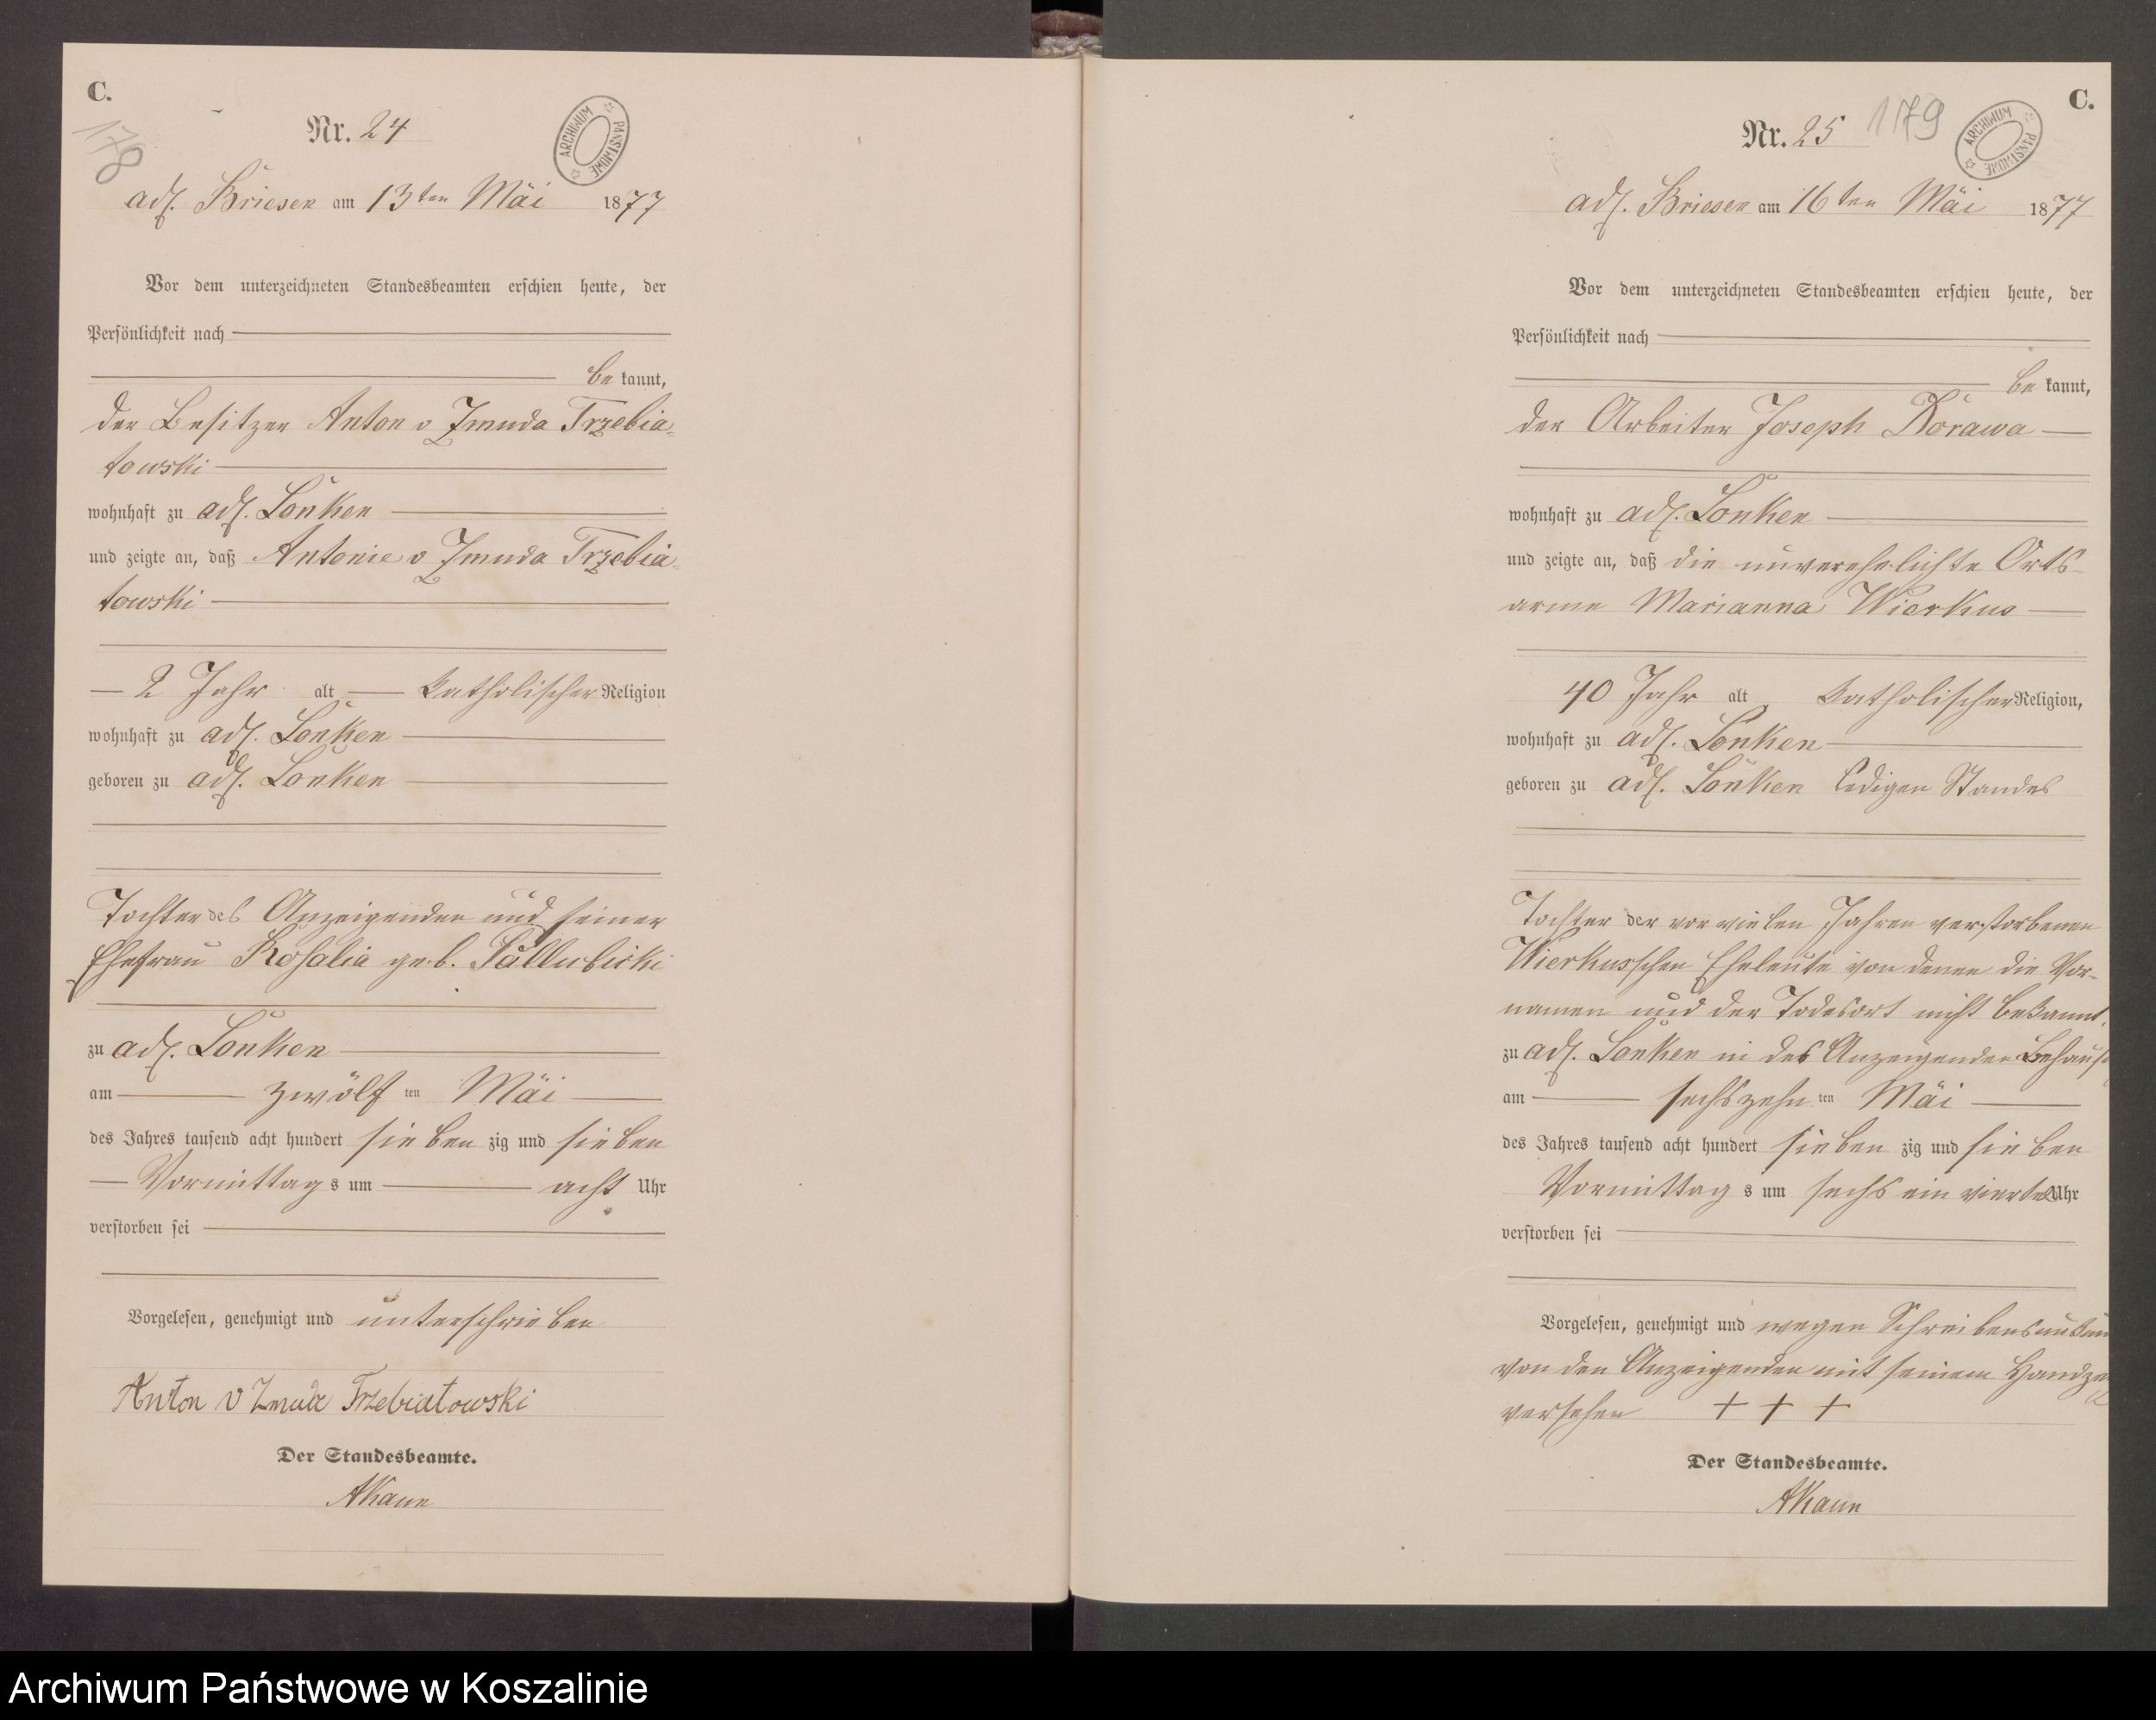 C.
178
Nr. 24
ARCHIWUM PAŃSTWOWE
adl. Briesen am 13ten Mai 1877
Vor dem unterzeichneten Standesbeamten erschien heute, der
Persönlichkeit nach
be kannt,
der Besitzer Anton v Zmuda Trzebia=
towski
wohnhaft zu adl. Lonken
und zeigte an, daß Antonie v Zmuda Trzebia=
towski
2 Jahr alt katholischer Religion
wohnhaft zu adl. Lonken
geboren zu adl. Lonken
Tochter des Anzeigenden und seiner
Ehefrau Rosalia geb. Pallubicki
zu adl. Lonken
am zwölf ten Mai
des Jahres tausend acht hundert sieben zig und sieben
Vormittag s um acht Uhr
verstorben sei
Vorgelesen, genehmigt und unterschrieben
Anton v Zmuda Trzebiatowski
Der Standesbeamte.
C.
Nr. 25
179
ARCHIWUM PAŃSTWOWE
adl. Briesen am 16ten Mai 1877
Vor dem unterzeichneten Standesbeamten erschien heute, der
Persönlichkeit nach
be kannt,
der Arbeiter Joseph Dorawa
wohnhaft zu adl. Lonken
und zeigte an, daß die unverehelichte Orts-
arme Marianna Wierkus
40 Jahr alt katholischer Religion,
wohnhaft zu adl. Lonken
geboren zu adl. Lonken ledigen Standes
Tochter der vor vielen Jahren verstorbenen
Wierkusschen Eheleute von denen die Vor-
namen und der Todesort nicht bekannt.
zu adl. Lonken in des Anzeigenden Behaus
am sechszehn ten Mai
des Jahres tausend acht hundert sieben zig und sieben
Vormittag s um sechs ein viertel Uhr
verstorben sei
Vorgelesen, genehmigt und wegen Schreibensunkun
von den Anzeigenden mit seinem Handzei
versehen + + +
Der Standesbeamte.
Archiwum Państwowe w Koszalinie